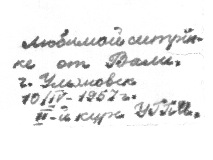 Любимой сестрён-
ке от Вали.
г. Ульяновск
10/IV-1957г.
III-й курс УГПИ.